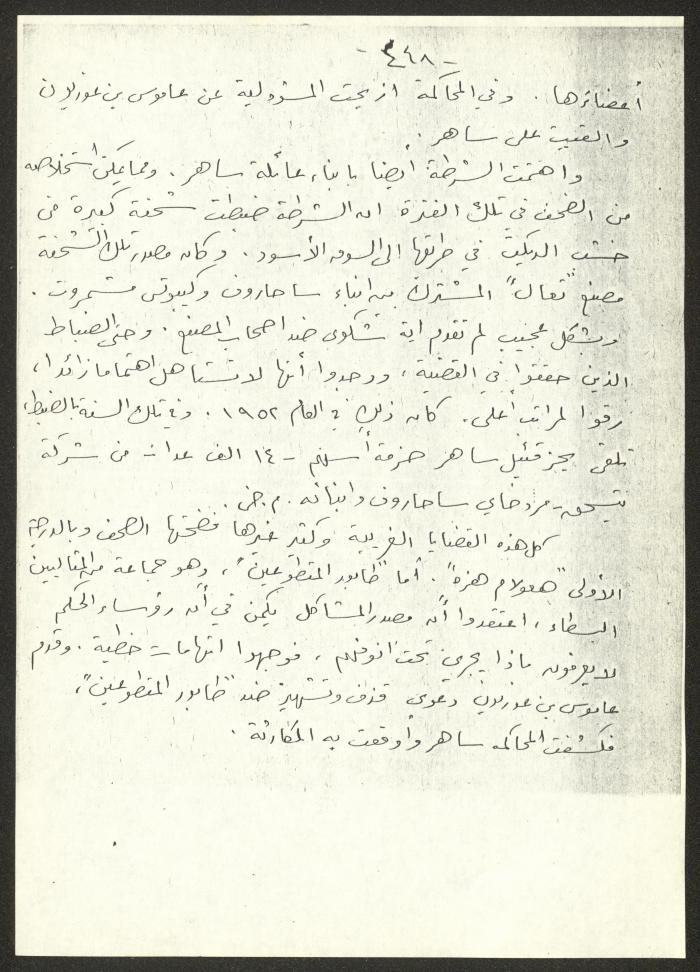 - ٤٤٨ -
أعضائها. وفي المحاكمة ازيحت المسؤولية عن عاموس بن غوريون
والقيت على ساهر.
واهتمت الشرطة أيضا بابناء عائلة ساهر. ومما يمكن استخلاصه
من الصحف في تلك الفترة ان الشرطة ضبطت شحنة كبيرة من
خشب الديكيت في طريقها الى السوق الأسود. وكان مصدر تلك الشحنة
مصنع "تعال" المشترك بين ابناء ساحاروف وكيبوتس مشمروت.
وبشكل عجيب لم تقدم اية شكوى ضد اصحاب المصنع. وحتى الضباط
الذين حققوا في القضية، ووجدوا أنها لا تستاهل اهتماما زائدا،
رقوا لمراتب أعلى. كان ذلك في العام ١٩٥٢. وفي تلك السنة بالضبط،
تلقى يحزقئيل ساهر حزمة أسهم - ١٤ الف عدا - من شركة
يتسحق مردخاي ساحاروف وابنائه. م. ض.
كل هذه القضايا الغريبة وكثير غيرها فضحتها الصحف وبالدرجة
الأولى "هعولام هزه". أما "طابور المتطوعين"، وهو جماعة من المثاليين
البسطاء، اعتقدوا أن مصدر المشاكل يكمن في أن رؤساء الحكم
لا يعرفون ماذا يجري تحت انوفهم، فوجهوا اتهامات خطية. وقدم
عاموس بن غوريون دعوى قذف وتشهير ضد "طابور المتطوعين"،
فكشفت المحاكمه ساهر وأوقعت به الكارثة.